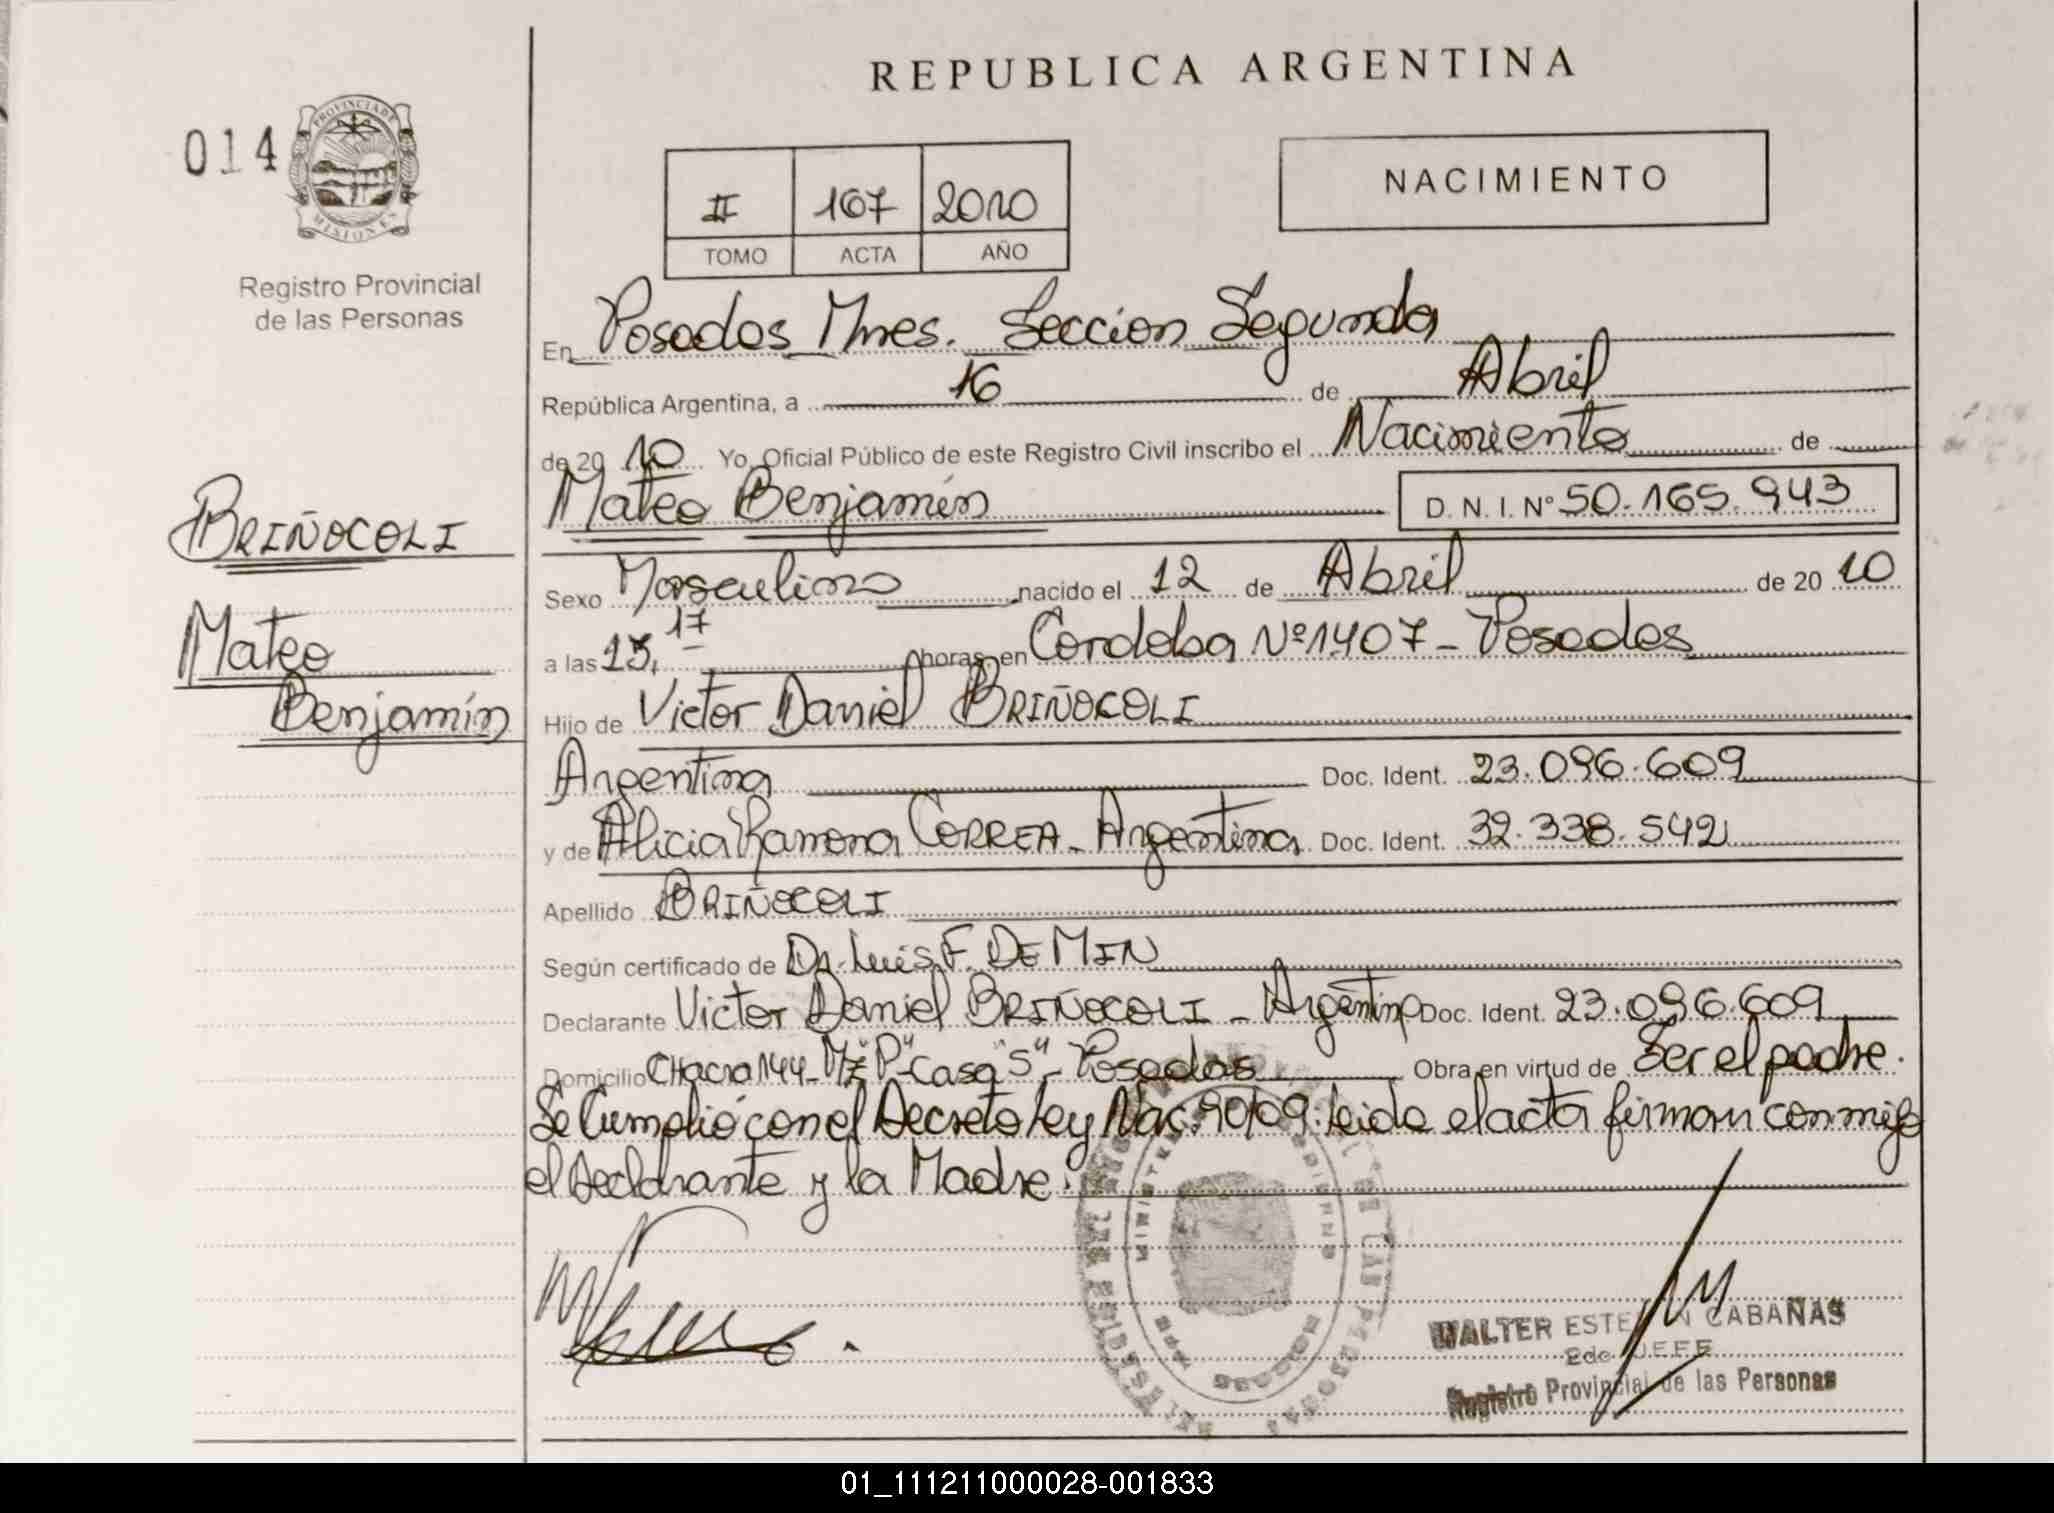 REPUBLICA ARGENTINA
014
PROVINCIA DE
MISIONES
Registro Provincial
de las Personas
II 167 2010
TOMO ACTA AÑO
NACIMIENTO
En Posadas Mnes. Seccion Segunda
República Argentina, a 16 de Abril
de 20 10 Yo, Oficial Público de este Registro Civil inscribo el Nacimiento de
Mateo Benjamín D. N. I. Nº 50.165.943
BRIÑOCOLI
Mateo
Benjamín
Sexo Masculino nacido el 12 de Abril de 20 10
a las 13,17 horas en Cordoba Nº 1407 - Posadas
Hijo de Victor Daniel BRIÑOCOLI
Argentina Doc. Ident. 23.096.609
y de Alicia Ramona CORREA - Argentina Doc. Ident. 32.338.542
Apellido BRIÑOCOLI
Según certificado de Dr. Luis F. DE MIN
Declarante Victor Daniel BRIÑOCOLI - Argentino Doc. Ident. 23.096.609
Domicilio CHacra 144 - Mz "P" - Casa "5" - Posadas Obra en virtud de Ser el padre.
Se Cumplió con el Decreto Ley Nac. 90/09. Leida el acta firman conmigo
el declarante y la Madre.
WALTER ESTE N CABAÑAS
2do JEFE
Registro Provincial de las Personas
01_111211000028-001833